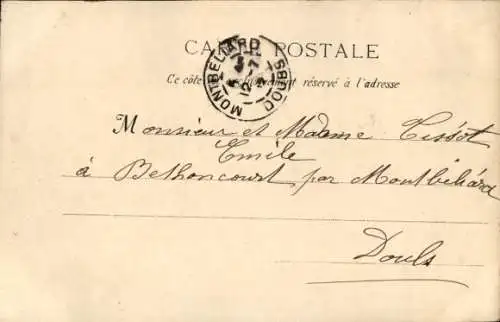 CARTE POSTALE
Ce côté exclusivement réservé à l'adresse
MONTBELIARD DOUBS
Monsieur et Madame Tissot
Emile
à Bethoncourt par Montbéliard
Doubs